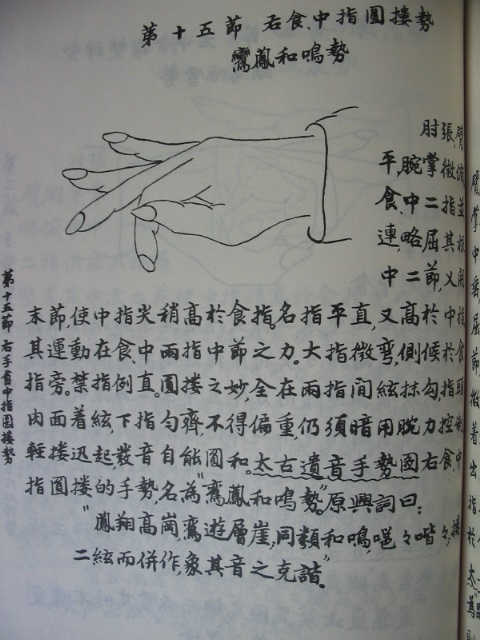 第十五節 右食、中指圓摟勢
鸞鳳和鳴勢
肘張,臂
腕掌微俯
平,食、中二指並
連,略屈其
中二節,入
末節,使中指尖稍高於食指。名指平直,又高於中指
其運動在食、中兩指中節之力。大指微彎,側候於食
指旁。禁指例直。圓摟之妙,全在兩指間絃抹勾指頭
肉面着絃下指勻齊,不得偏重,仍須暗用腕力控絃
輕摟迅起數音自能圓和。太古遺音手勢圖右食中
指圓摟的手勢,名為“鸞鳳和鳴勢”。原興詞曰:
“鳳翔高崗,鸞遊層崖,同類和鳴,噰々喈々,摟
二絃而併作,象其音之克諧。”
第十五節 右手食中指圓摟勢